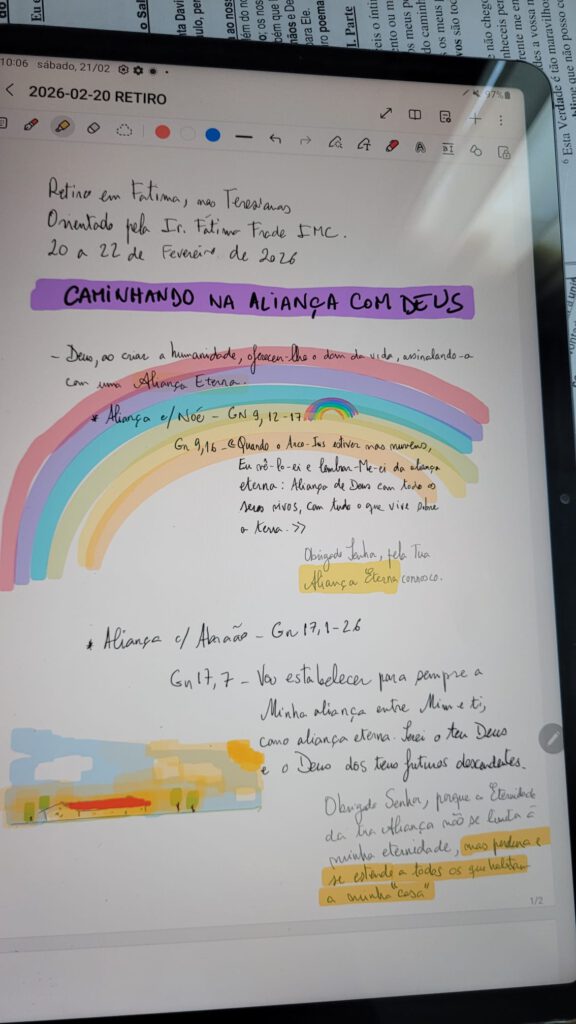 10:06 sábado, 21/02
97%
2026-02-20 RETIRO
Retiro em Fátima, nas Teresianas
Orientado pela Ir. Fátima Frade IMC.
20 a 22 de Fevereiro de 2026
CAMINHANDO NA ALIANÇA COM DEUS
- Deus, ao criar a humanidade, ofereceu-lhe o dom da vida, assinalando-a
com uma Aliança Eterna.
* Aliança c/ Noé - GN 9, 12-17
Gn 9,16 - «Quando o Arco-Íris estiver nas nuvens,
Eu vê-lo-ei e lembrar-Me-ei da aliança
eterna: Aliança de Deus com todos os
seres vivos, com tudo o que vive sobre
a terra.»
Obrigado Senhor, pela Tua
Aliança Eterna connosco.
* Aliança c/ Abraão - Gn 17, 1-26
Gn 17, 7 - Vou estabelecer para sempre a
Minha aliança entre Mim e ti,
como aliança eterna. Serei o teu Deus
e o Deus dos teus futuros descendentes.
Obrigado Senhor, porque a Eternidade
da tua Aliança não se limita à
minha eternidade, mas perdura e
se estende a todos os que habitam
a minha "casa"
1/2